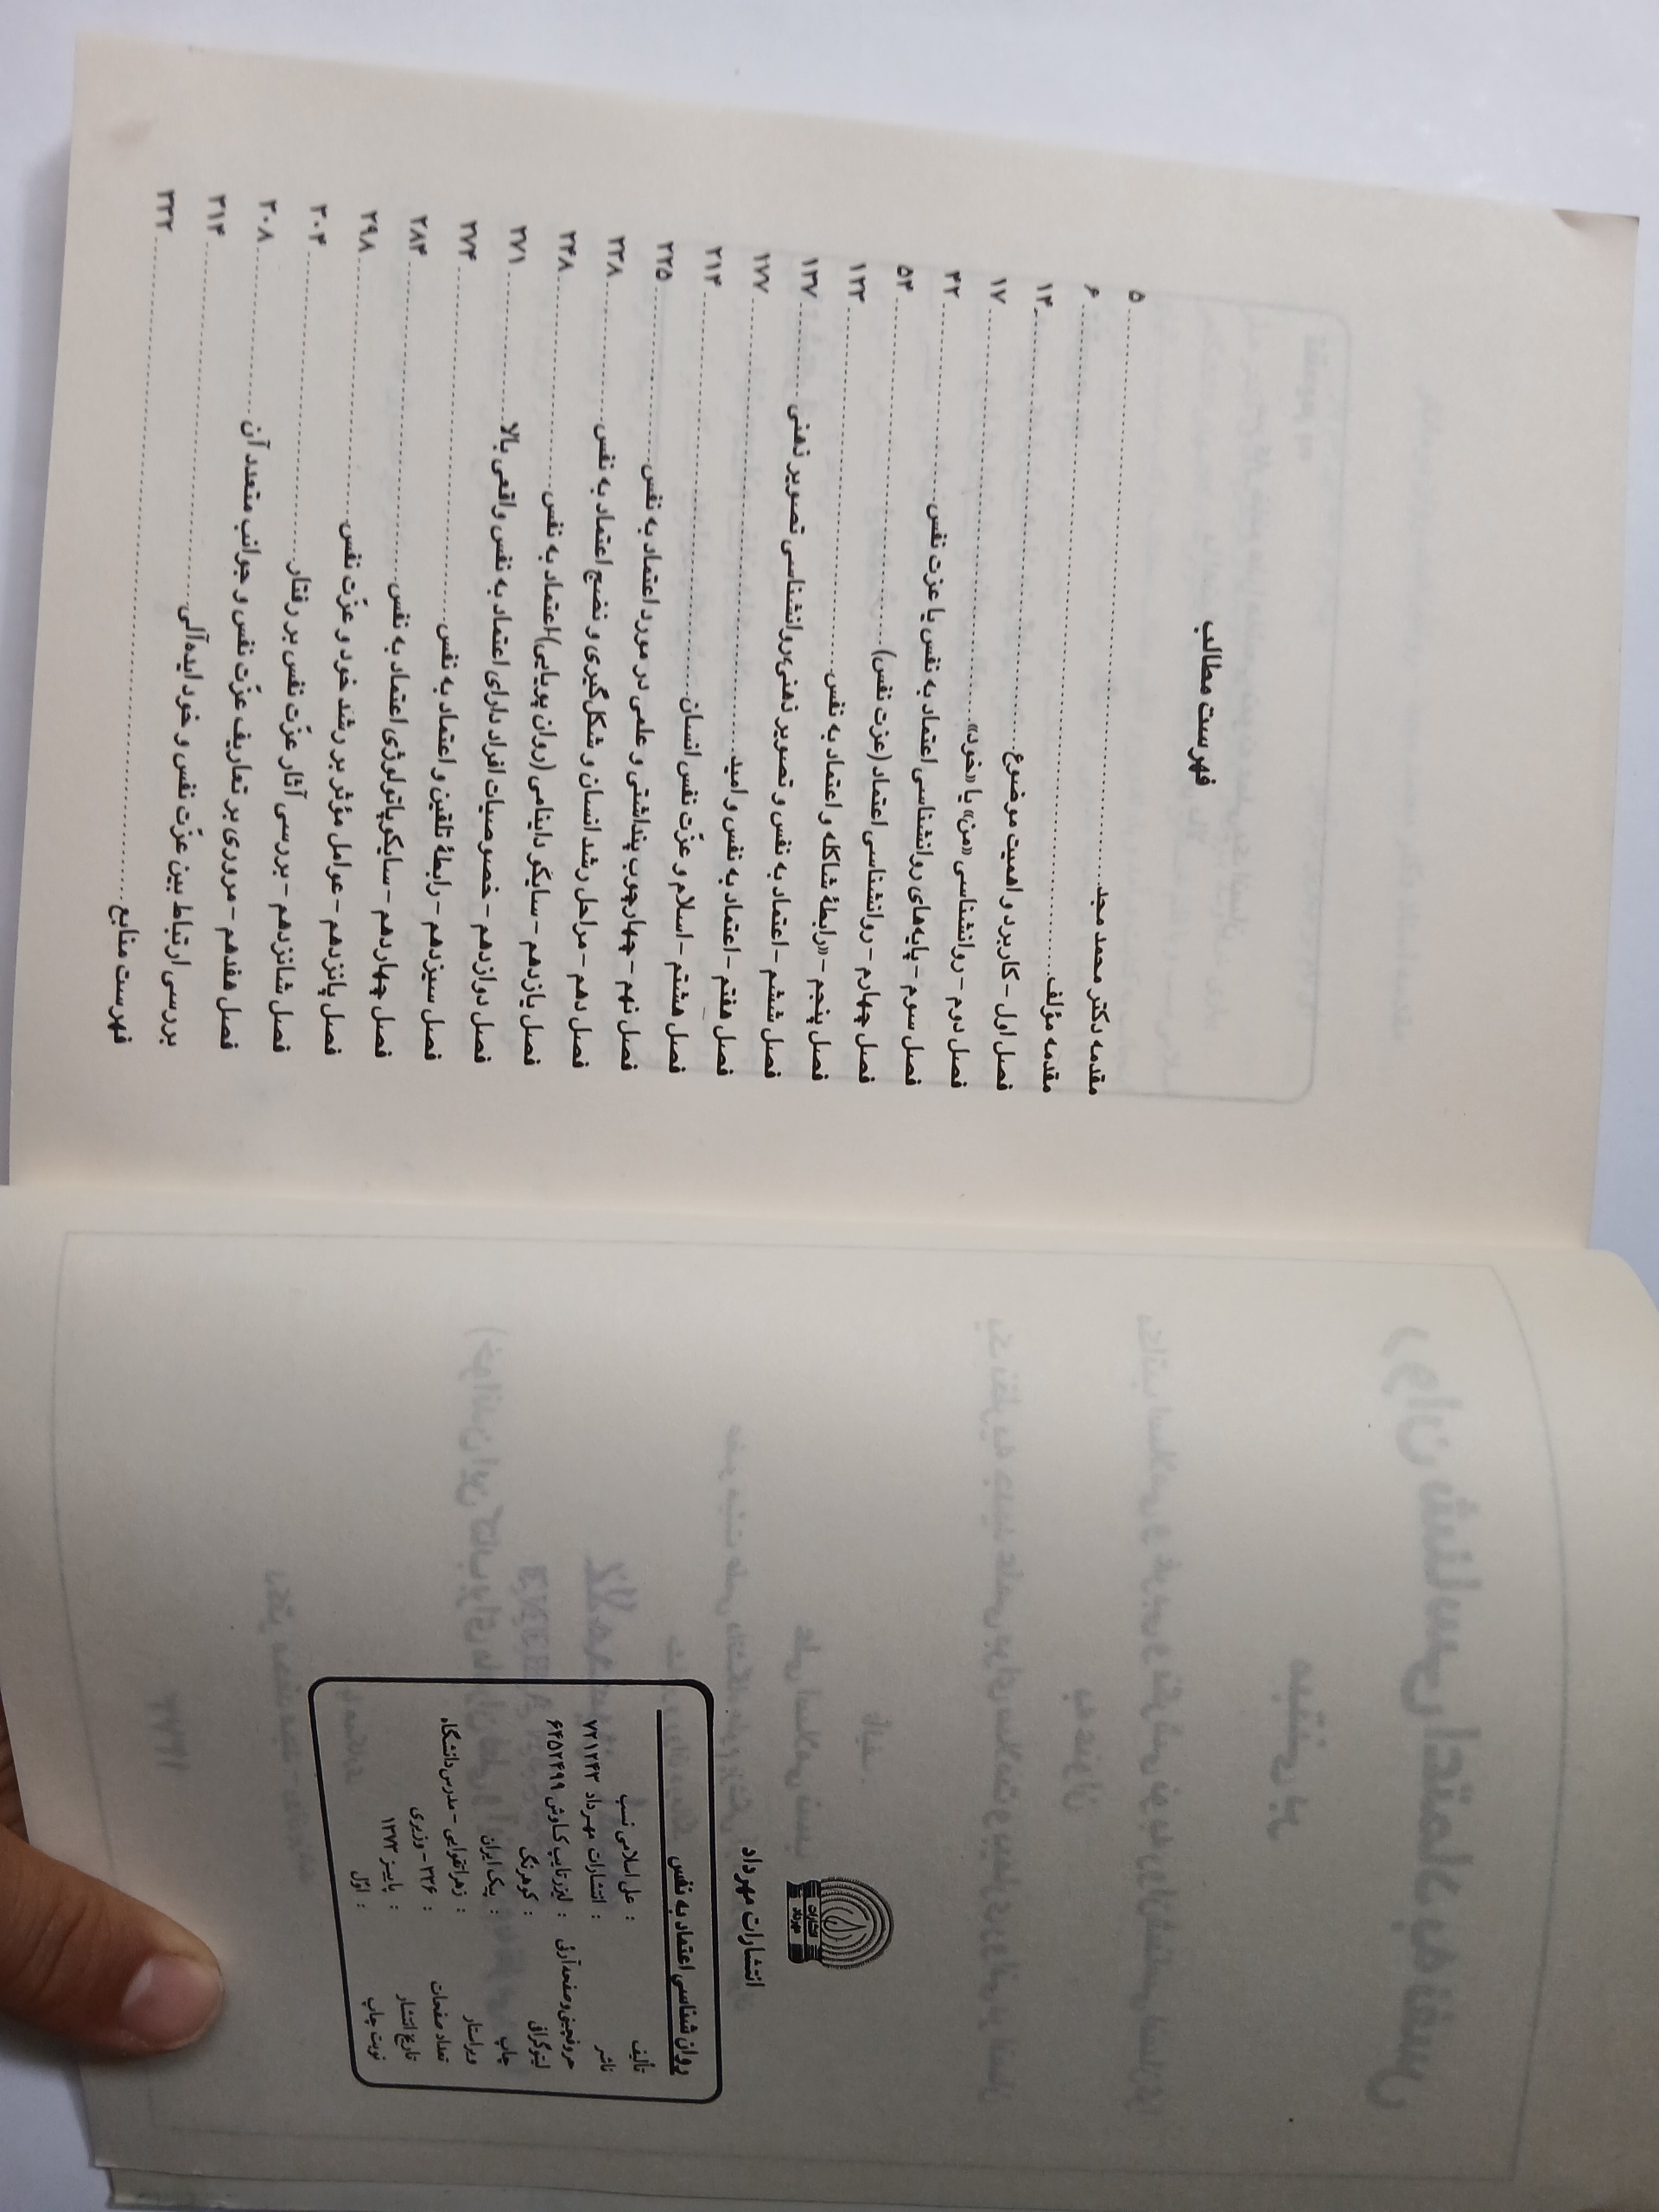 انتشارات
مهرداد
انتشارات مهرداد
روان شناسی اعتماد به نفس
تألیف : علی اسلامی نسب
ناشر : انتشارات مهرداد ۷۲۱۲۴۳
حروفچینی و صفحه‌آرئی : لیزرتایپ کاوش ۶۴۵۲۴۹۹
لیتوگرافی : کوهرنگ
چاپ : پیک ایران
ویراستار : زهرا تقوایی - مدرس دانشگاه
تعداد صفحات : ۳۳۶ - وزیری
تاریخ انتشار : پاییز ۱۳۷۳
نوبت چاپ : اوّل
فهرست مطالب
مقدمه دکتر محمد مجد ۵
مقدمه مؤلف ۶
فصل اول - کاربرد و اهمیت موضوع ۱۴
فصل دوم - روانشناسی «من» یا «خود» ۱۷
فصل سوم - پایه‌های روانشناسی اعتماد به نفس یا عزت نفس ۴۲
فصل چهارم - روانشناسی اعتماد (عزت نفس) ۵۴
فصل پنجم - «رابطهٔ شاکله و اعتماد به نفس ۱۲۳
فصل ششم - اعتماد به نفس و تصویر ذهنی،روانشناسی تصویر ذهنی ۱۳۷
فصل هفتم - اعتماد به نفس و امید ۱۷۷
فصل هشتم - اسلام و عزّت نفس انسان ۲۱۴
فصل نهم - چهارچوب پنداشتی و علمی در مورد اعتماد به نفس ۲۲۵
فصل دهم - مراحل رشد انسان و شکل‌گیری و نضج اعتماد به نفس ۲۳۸
فصل یازدهم - سایکو داینامی (روان پویایی) اعتماد به نفس ۲۴۸
فصل دوازدهم - خصوصیات افراد دارای اعتماد به نفس واقعی بالا ۲۷۱
فصل سیزدهم - رابطهٔ تلقین و اعتماد به نفس ۲۷۴
فصل چهاردهم - سایکوپاتولوژی اعتماد به نفس ۲۸۴
فصل پانزدهم - عوامل مؤثر بر رشد خود و عزّت نفس ۲۹۸
فصل شانزدهم - بررسی آثار عزّت نفس بر رفتار ۳۰۴
فصل هفدهم - مروری بر تعاریف عزّت نفس و جوانب متعدد آن ۳۰۸
بررسی ارتباط بین عزّت نفس و خود ایده‌آلی ۳۱۴
فهرست منابع ۳۳۲